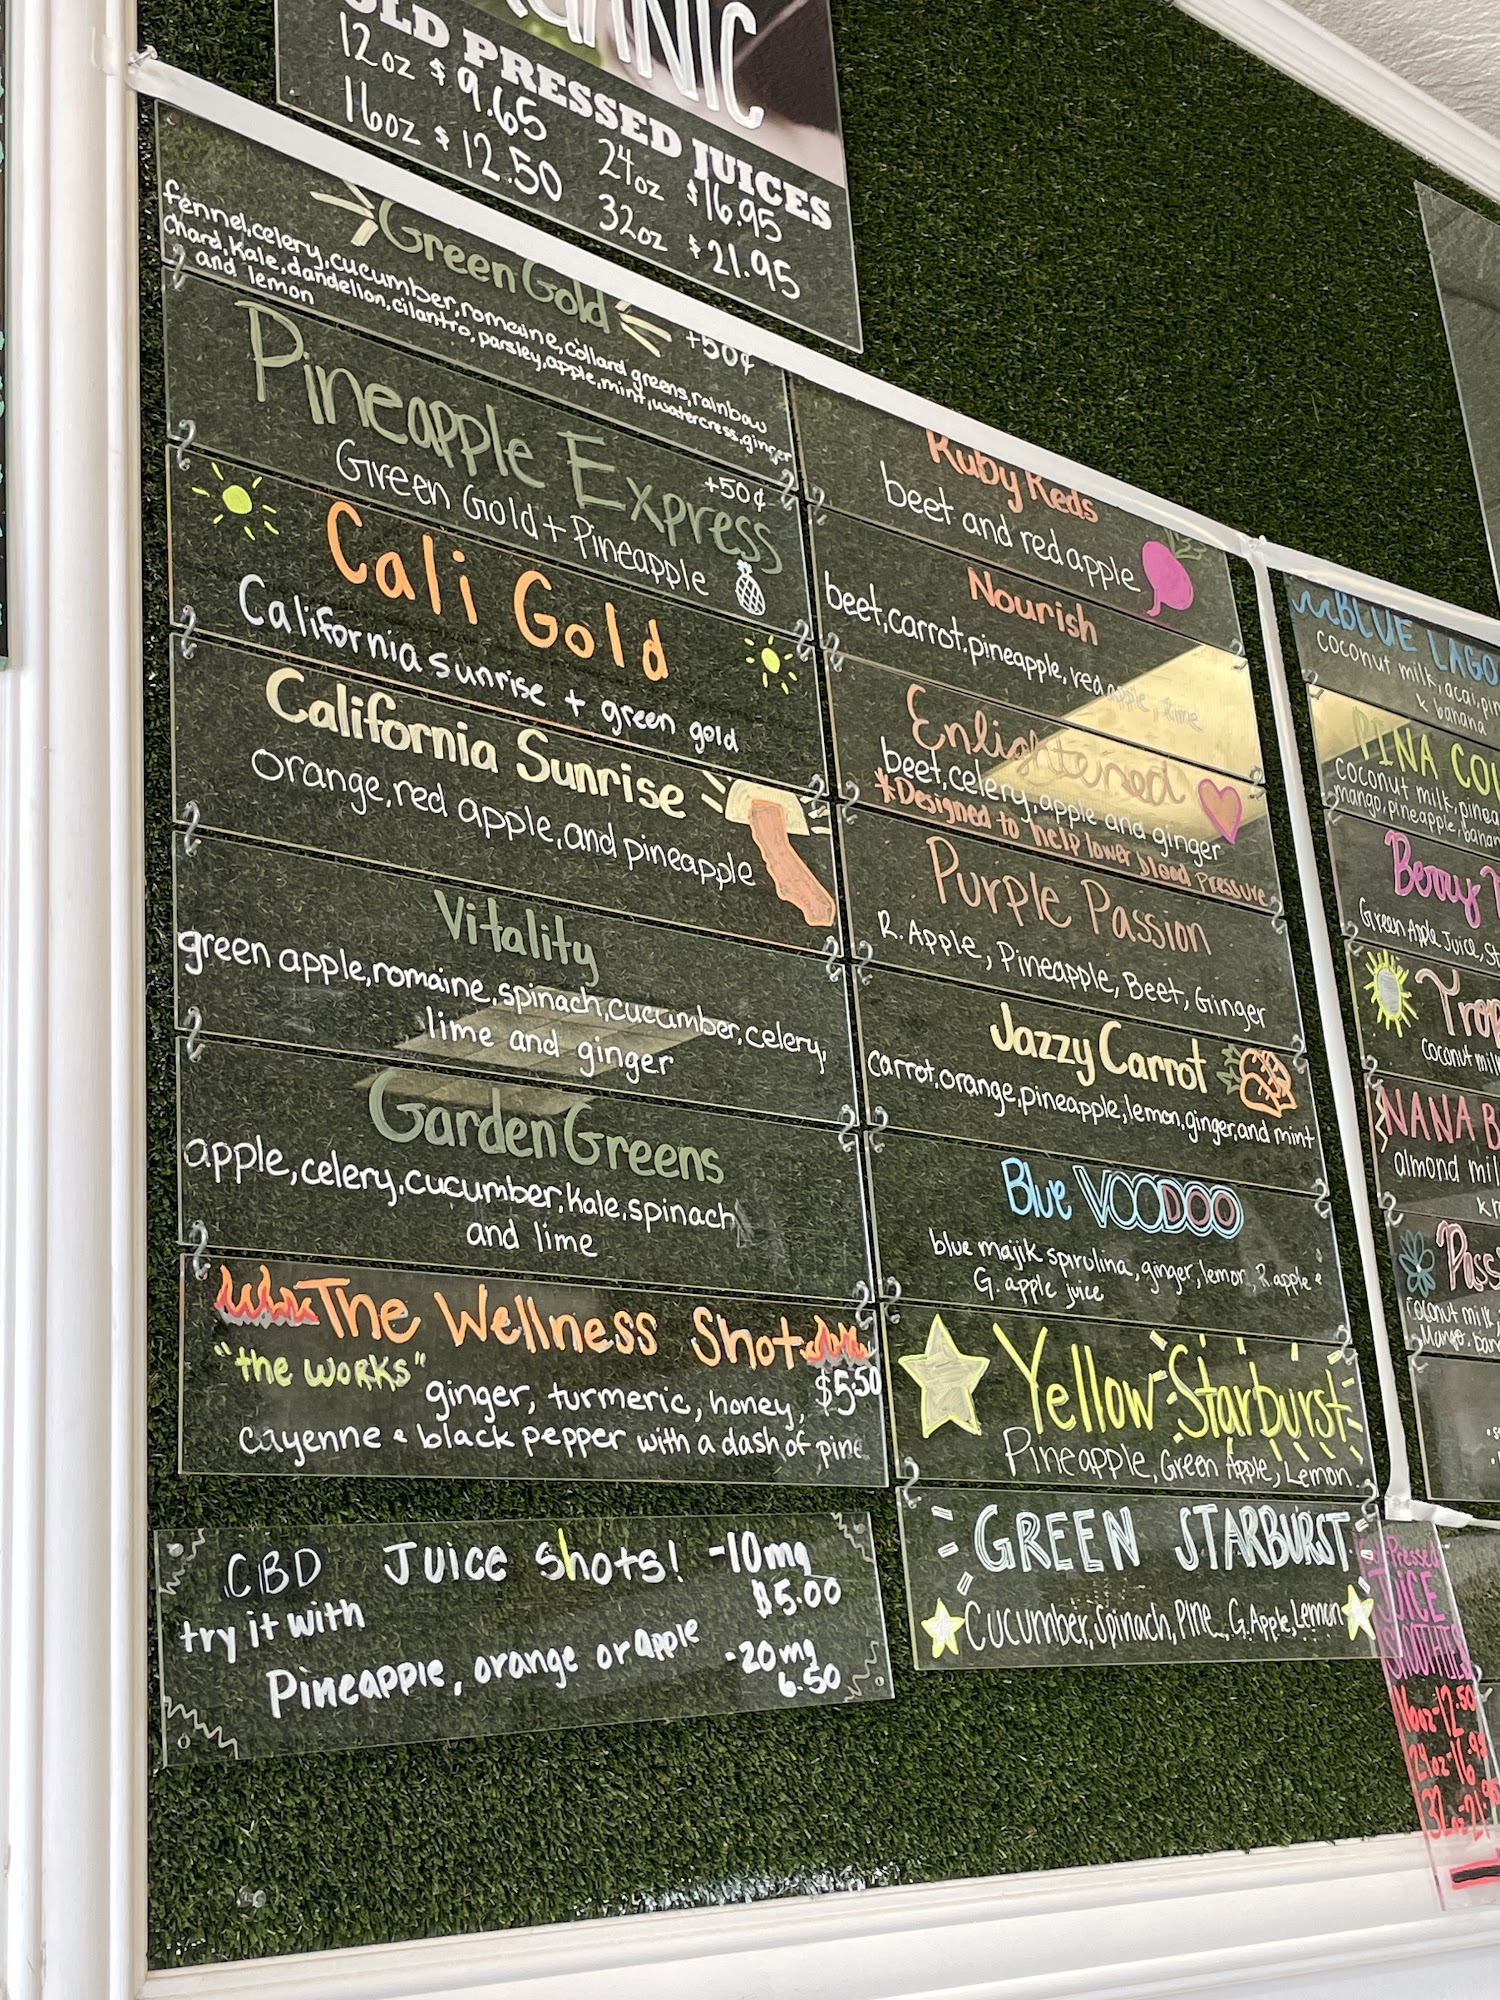 OLD PRESSED JUICES
12oz $9.65 24oz $16.95
16oz $12.50 32oz $21.95
Green Gold +50¢
fennel, celery, cucumber, romaine, collard greens, rainbow
Chard, Kale, dandelion, cilantro, parsley, apple, mint, watercress, ginger
and lemon
Pineapple Express
+50¢
Green Gold + Pineapple
Cali Gold
California sunrise + green gold
California Sunrise
orange, red apple, and pineapple
Vitality
green apple, romaine, spinach, cucumber, celery,
lime and ginger
Garden Greens
apple, celery, cucumber, kale, spinach,
and lime
The Wellness Shot
"the works" $5.50
ginger, turmeric, honey,
cayenne & black pepper with a dash of pine
CBD Juice shots! -10mg
$5.00
try it with
Pineapple, orange or apple -20mg
6.50
Ruby Reds
beet and red apple
Nourish
beet, carrot, pineapple, red apple, lime
Enlightened
beet, celery, apple and ginger
*Designed to help lower blood pressure
Purple Passion
R. Apple, Pineapple, Beet, Ginger
Jazzy Carrot
carrot, orange, pineapple, lemon, ginger, and mint
Blue VOODOO
blue majik spirulina, ginger, lemon, R. apple &
G. apple juice
Yellow Starburst
Pineapple, Green Apple, Lemon
GREEN STARBURST
Cucumber, Spinach, Pine, G. Apple, Lemon
BLUE LAGO
coconut milk, acai, pin
& banana
PINA COL
coconut milk, pinea
mango, pineapple, banan
Berry
Green Apple Juice, St
Trop
Coconut milk
NANA B
almond mil
Pass
Coconut milk,
Mango, ban
Pressed
JUICE
SMOOTHIES
16oz-12.50
24oz-16.95
32oz-21.95